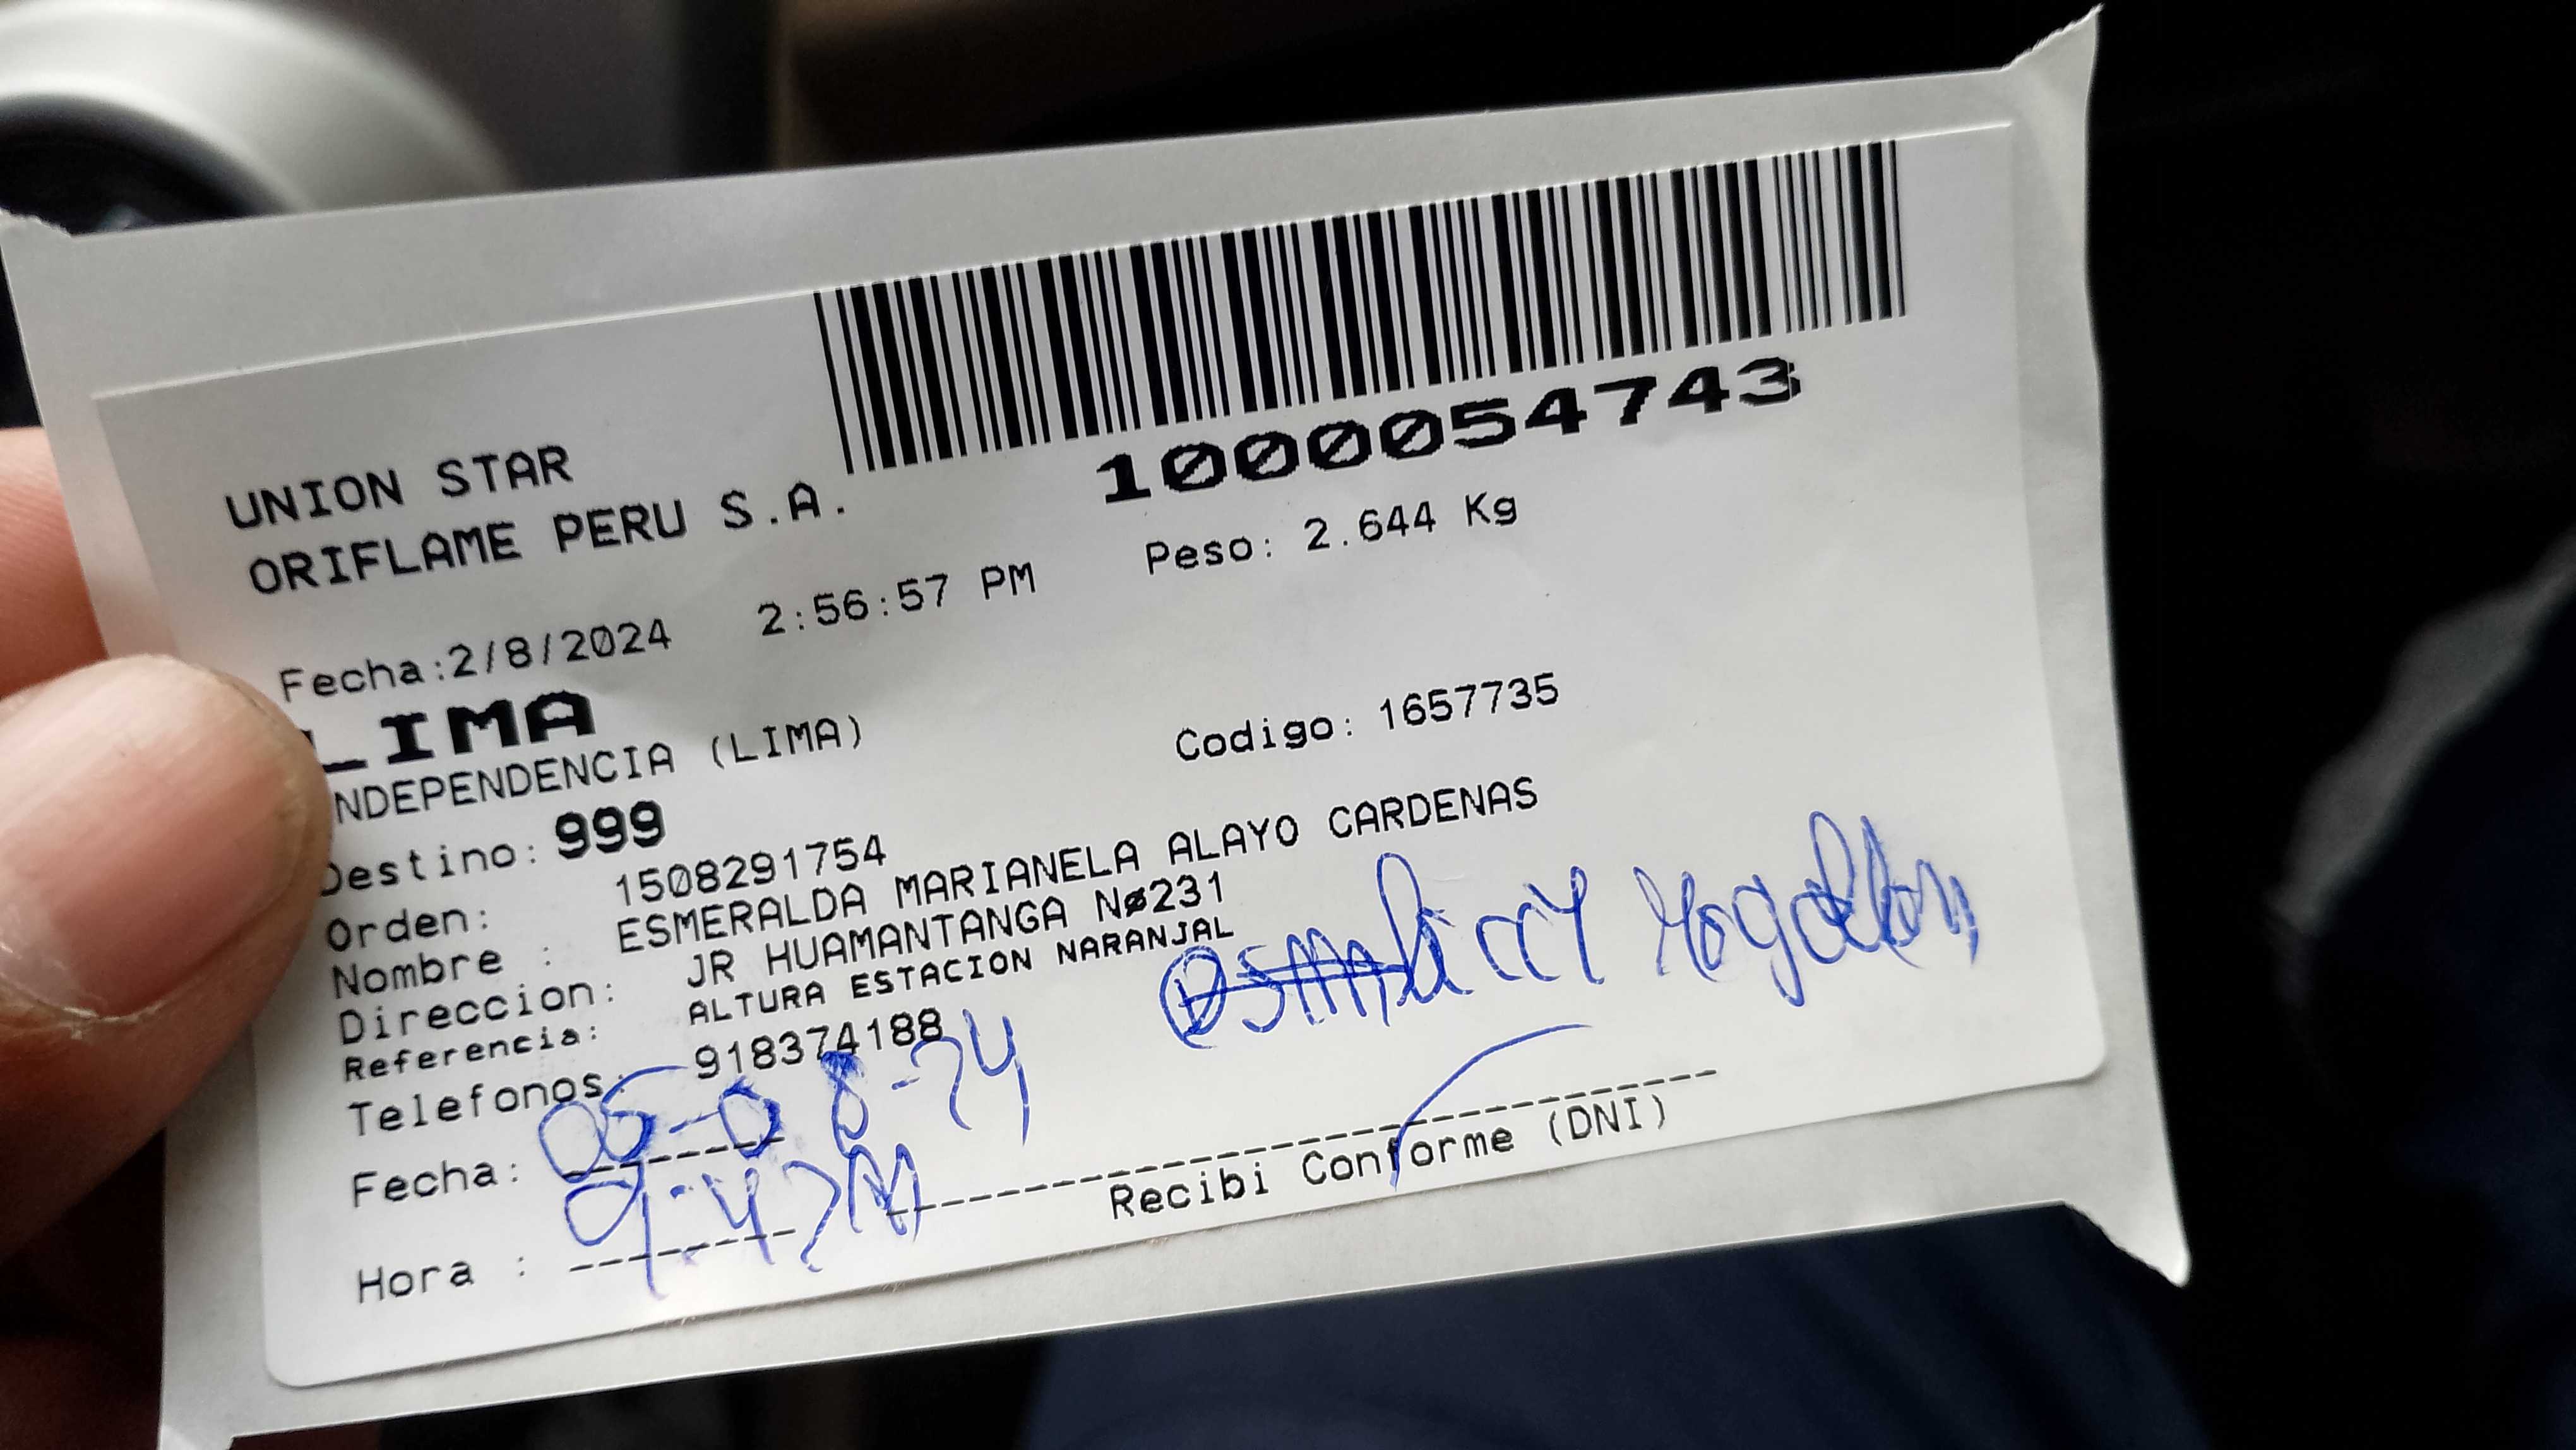 1000054743
UNION STAR
ORIFLAME PERU S.A.
Peso: 2.644 Kg
Fecha:2/8/2024 2:56:57 PM
LIMA
INDEPENDENCIA (LIMA)
Codigo: 1657735
Destino: 999
Orden: 1508291754
Nombre : ESMERALDA MARIANELA ALAYO CARDENAS
Direccion: JR HUAMANTANGA Nø231
Referencia: ALTURA ESTACION NARANJAL
Telefonos: 918374188
Fecha: 05-08-24
Recibi Conforme (DNI)
Hora :